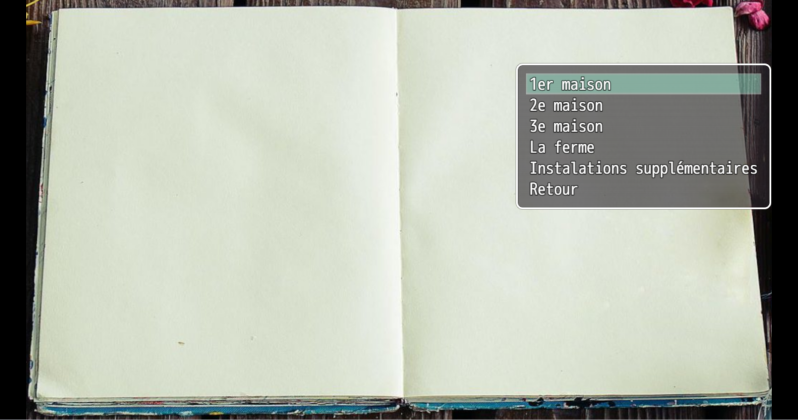 1er maison
2e maison
3e maison
La ferme
Instalations supplémentaires
Retour